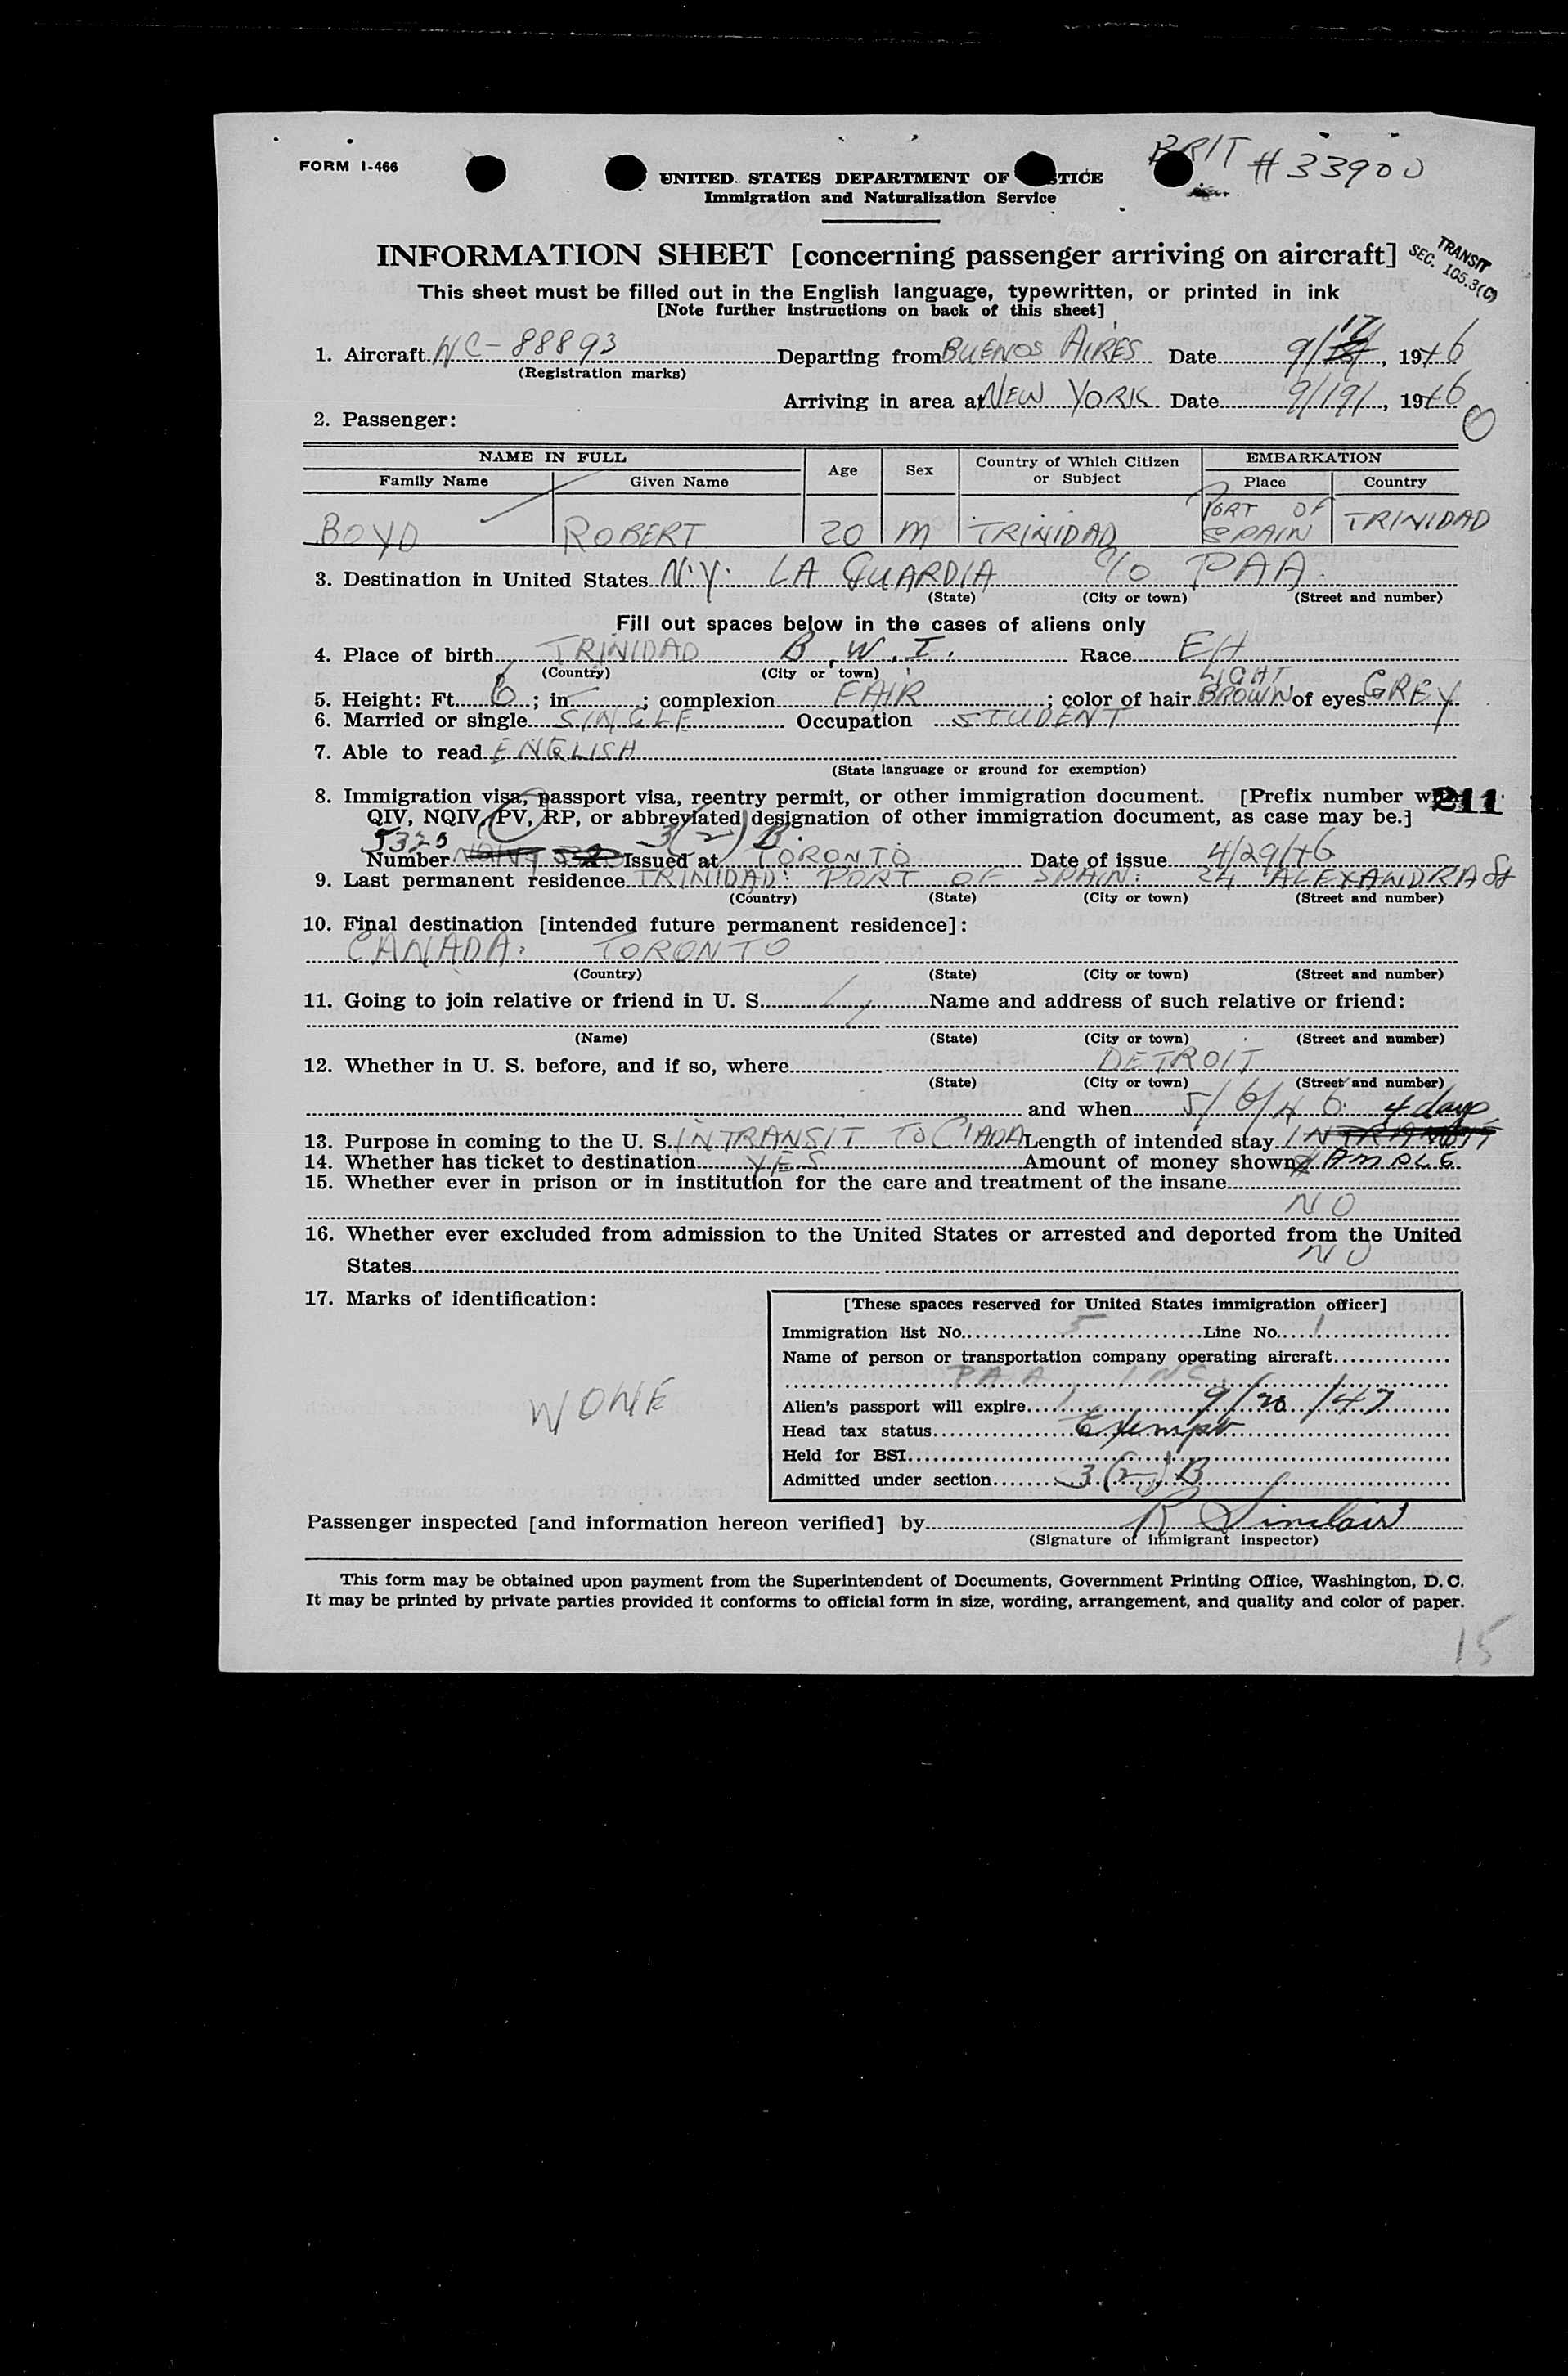 FORM I-466
BRIT # 33900
UNITED STATES DEPARTMENT OF STICE
Immigration and Naturalization Service
INFORMATION SHEET [concerning passenger arriving on aircraft]
TRANSIT
SEC. 105.3(C)
This sheet must be filled out in the English language, typewritten, or printed in ink
[Note further instructions on back of this sheet]
1. Aircraft NC-88893 Departing from BUENOS AIRES Date 9/17/, 1946
(Registration marks)
Arriving in area at NEW YORK Date 9/19/, 1946
2. Passenger:
NAME IN FULL Age Sex Country of Which Citizen or Subject EMBARKATION
Family Name Given Name Place Country
BOYD ROBERT 20 M TRINIDAD PORT OF SPAIN TRINIDAD
3. Destination in United States N.Y. LA GUARDIA C/O PAA
(State) (City or town) (Street and number)
Fill out spaces below in the cases of aliens only
4. Place of birth TRINIDAD B.W.I. Race EH
(Country) (City or town)
5. Height: Ft. 6; in ; complexion FAIR; color of hair LIGHT BROWN of eyes GREY
6. Married or single SINGLE Occupation STUDENT
7. Able to read ENGLISH
(State language or ground for exemption)
8. Immigration visa, passport visa, reentry permit, or other immigration document. [Prefix number w 211
QIV, NQIV, PV, RP, or abbreviated designation of other immigration document, as case may be.]
5325 3(2)B.
Number Issued at TORONTO Date of issue 4/29/46
9. Last permanent residence TRINIDAD: PORT OF SPAIN: 24 ALEXANDRA St
(Country) (State) (City or town) (Street and number)
10. Final destination [intended future permanent residence]:
CANADA. TORONTO
(Country) (State) (City or town) (Street and number)
11. Going to join relative or friend in U. S. Name and address of such relative or friend:
(Name) (State) (City or town) (Street and number)
12. Whether in U. S. before, and if so, where DETROIT
(State) (City or town) (Street and number)
and when 5/6/46. 4 days
13. Purpose in coming to the U. S. IN TRANSIT TO C'ADA Length of intended stay IN TRANSIT
14. Whether has ticket to destination YES Amount of money shown $ AMPLE
15. Whether ever in prison or in institution for the care and treatment of the insane
NO
16. Whether ever excluded from admission to the United States or arrested and deported from the United
States NO
17. Marks of identification:
NONE
[These spaces reserved for United States immigration officer]
Immigration list No. 5 Line No. 1
Name of person or transportation company operating aircraft
PAA INC.
Alien's passport will expire 9/20/47
Head tax status Exempt
Held for BSI
Admitted under section 3(2)B
Passenger inspected [and information hereon verified] by R Sinclair
(Signature of immigrant inspector)
This form may be obtained upon payment from the Superintendent of Documents, Government Printing Office, Washington, D. C.
It may be printed by private parties provided it conforms to official form in size, wording, arrangement, and quality and color of paper.
15